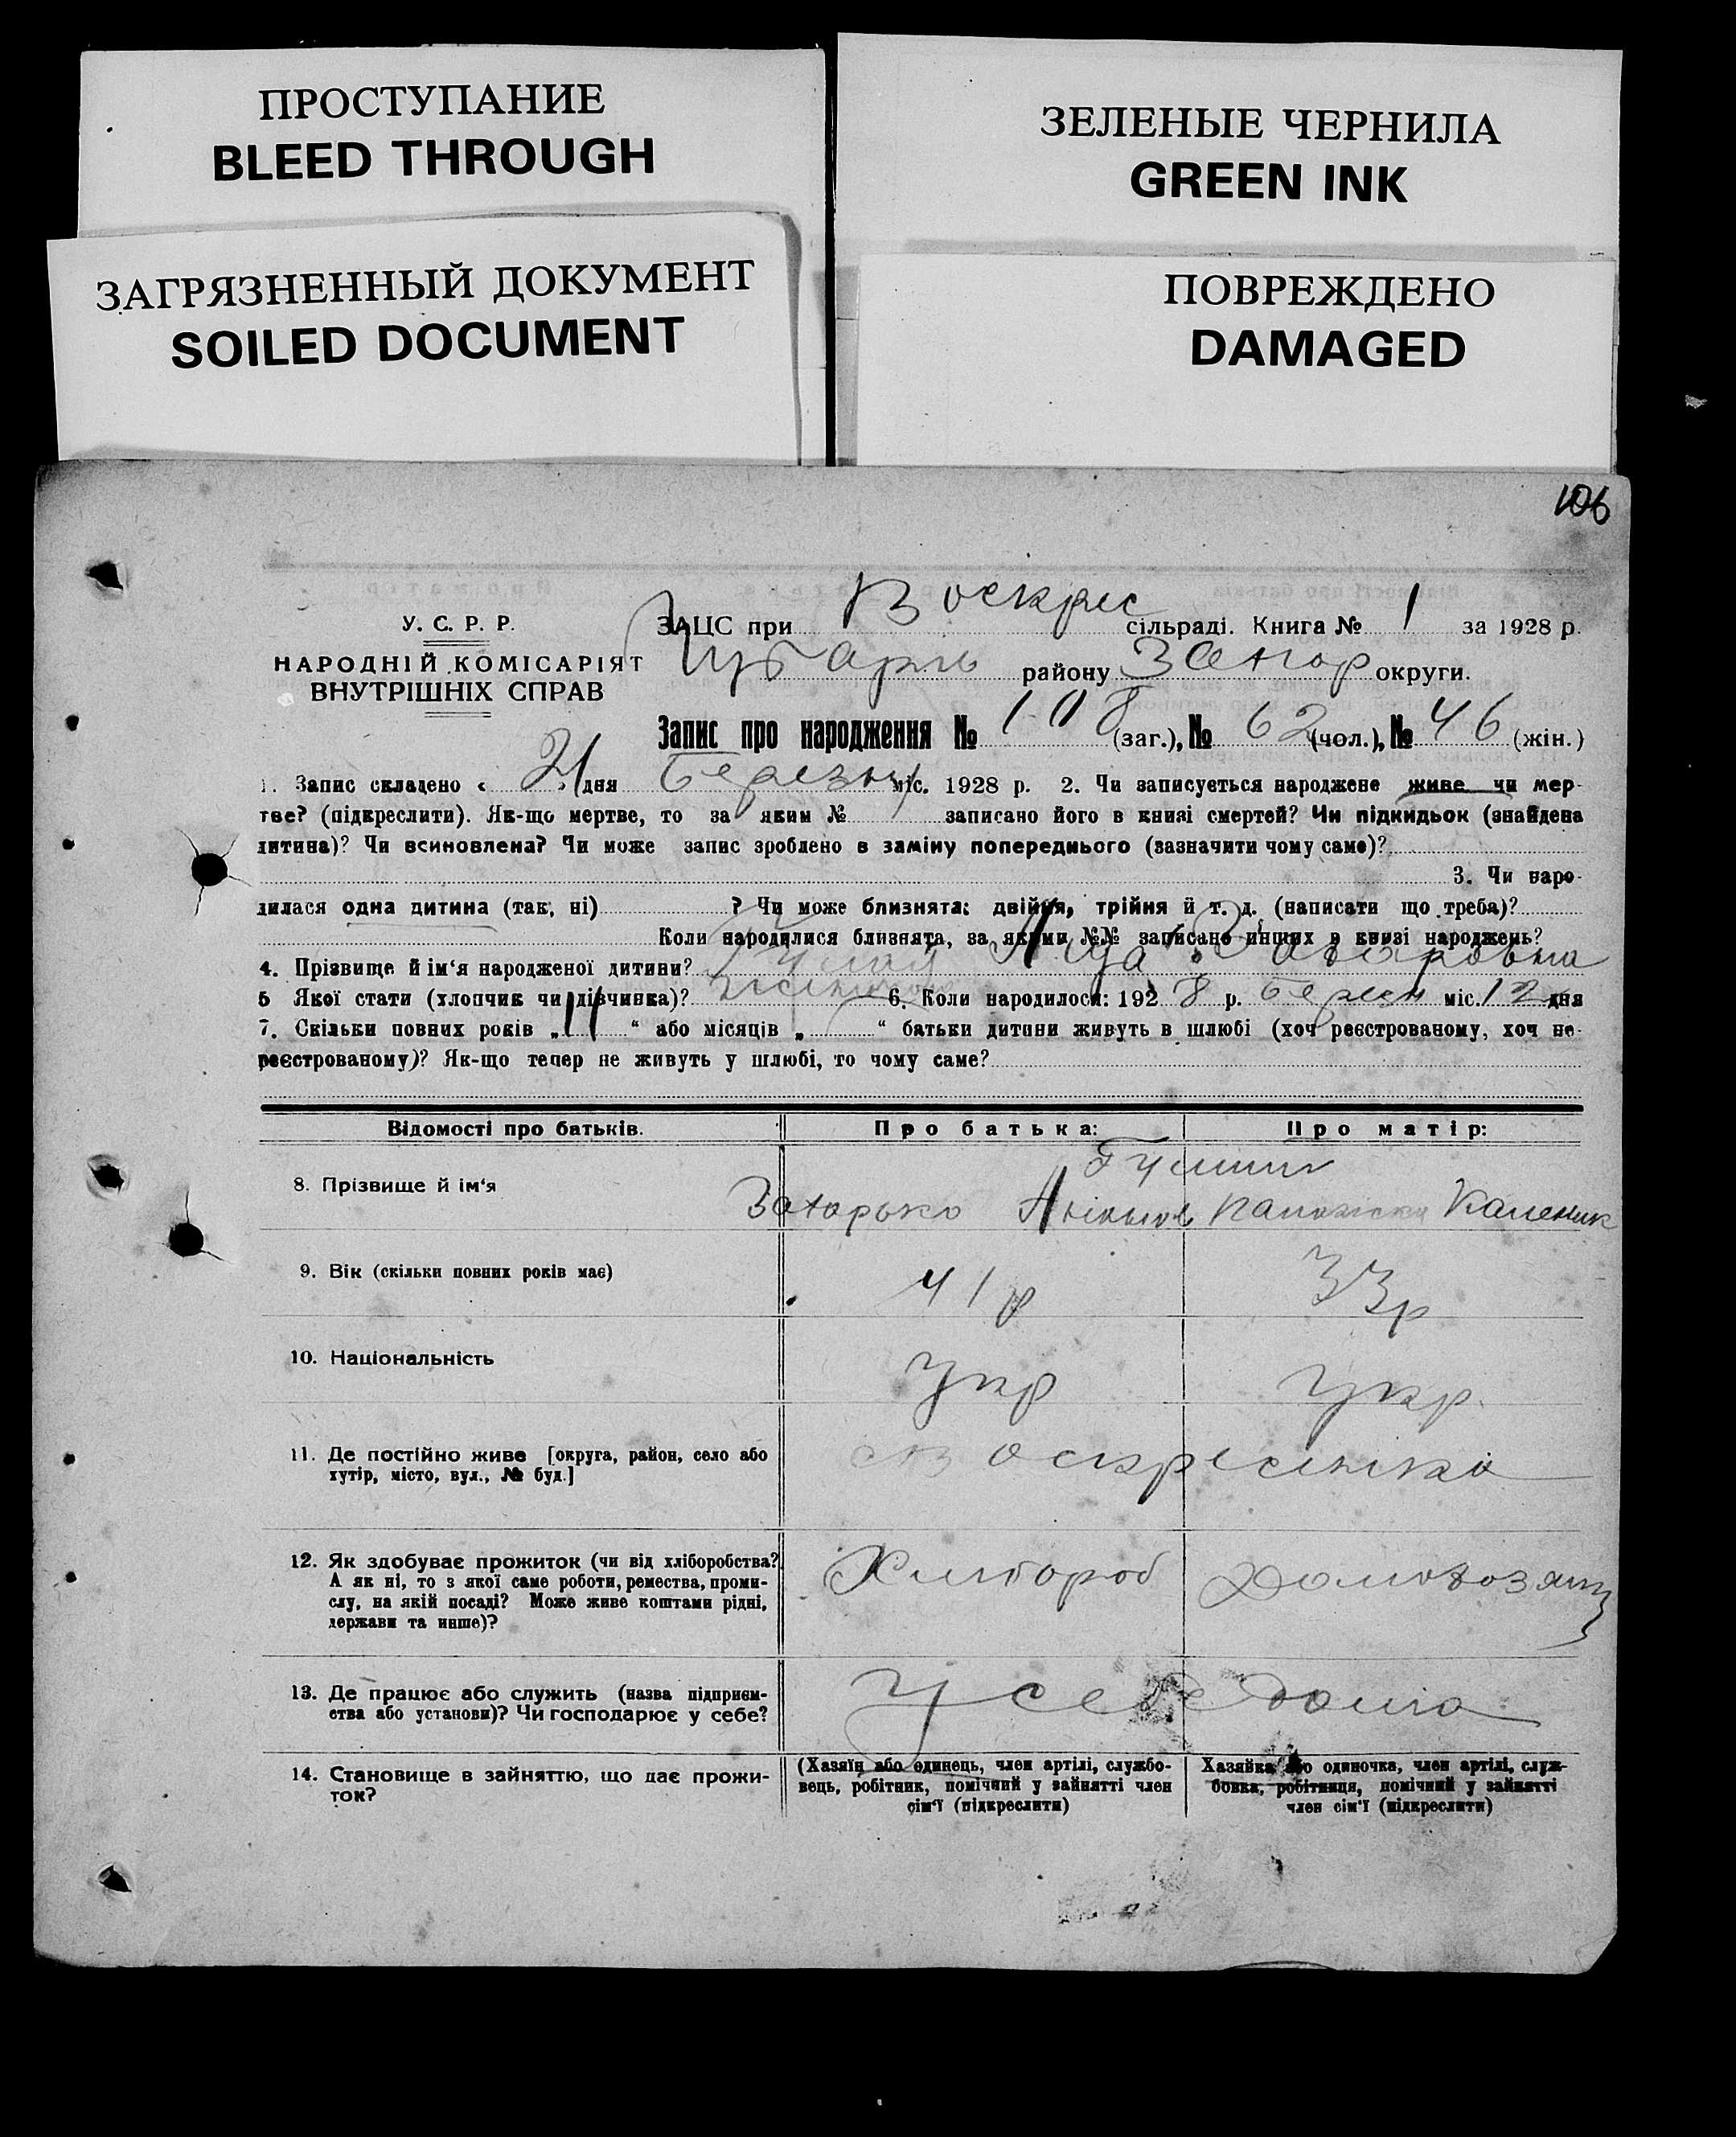 ПРОСТУПАНИЕ
BLEED THROUGH
ЗЕЛЕНЫЕ ЧЕРНИЛА
GREEN INK
ЗАГРЯЗНЕННЫЙ ДОКУМЕНТ
SOILED DOCUMENT
ПОВРЕЖДЕНО
DAMAGED
106
У. С. Р. Р.
НАРОДНІЙ КОМІСАРІЯТ
ВНУТРІШНІХ СПРАВ
ЗАЦС при Воскрес сільраді. Книга № 1 за 1928 р.
району Запор округи.
Запис про народження № 108 (заг.), № 62 (чол.), № 46 (жін.)
1. Запис складено « 21 » дня Березня міс. 1928 р. 2. Чи записується народжене живе чи мер-
тве? (підкреслити). Як-що мертве, то за яким № записано його в книзі смертей? Чи підкидьок (знайдена
дитина)? Чи всиновлена? Чи може запис зроблено в заміну попереднього (зазначити чому саме)?
3. Чи наро-
дилася одна дитина (так, ні) ? Чи може близнята: двійня, трійня й т. д. (написати що треба)?
Коли народилися близнята, за якими №№ записано инших в книзі народжень?
4. Прізвище й ім'я народженої дитини?
5 Якої стати (хлопчик чи дівчинка)? 6. Коли народилося: 1928 р. Березн міс. 12 дня
7. Скільки повних років „11“ або місяців „ “ батьки дитини живуть в шлюбі (хоч реєстрованому, хоч не-
реєстрованому)? Як-що тепер не живуть у шлюбі, то чому саме?
Відомості про батьків. Про батька: Про матір:
8. Прізвище й ім'я
Каленик
9. Вік (скільки повних років має) 41 р 33 р
10. Національність Укр Укр.
11. Де постійно живе [округа, район, село або
хутір, місто, вул., № буд.]
Воскресенка
12. Як здобуває прожиток (чи від хліборобства?
А як ні, то з якої саме роботи, ремества, проми-
слу, на якій посаді? Може живе коштами рідні,
держави та инше)?
Хлібороб
13. Де працює або служить (назва підприєм-
ства або установи)? Чи господарює у себе?
У себе дома
14. Становище в зайняттю, що дає прожи-
ток?
(Хазяїн або одинець, член артілі, службо-
вець, робітник, помічний у зайнятті член
сім'ї (підкреслити)
Хазяйка або одиночка, член артілі, служ-
бовка, робітниця, помічний у зайнятті
член сім'ї (підкреслити)